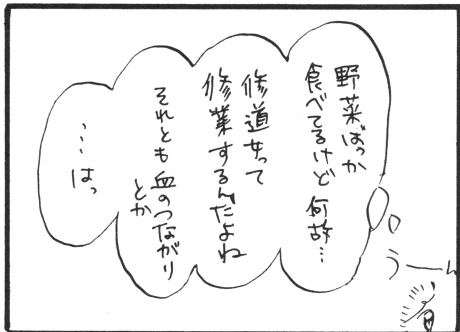 野菜ばっか
食べてるけど何故…
修道女って
修業するんだよね
それとも血のつながり
とか
…はっ
うーん